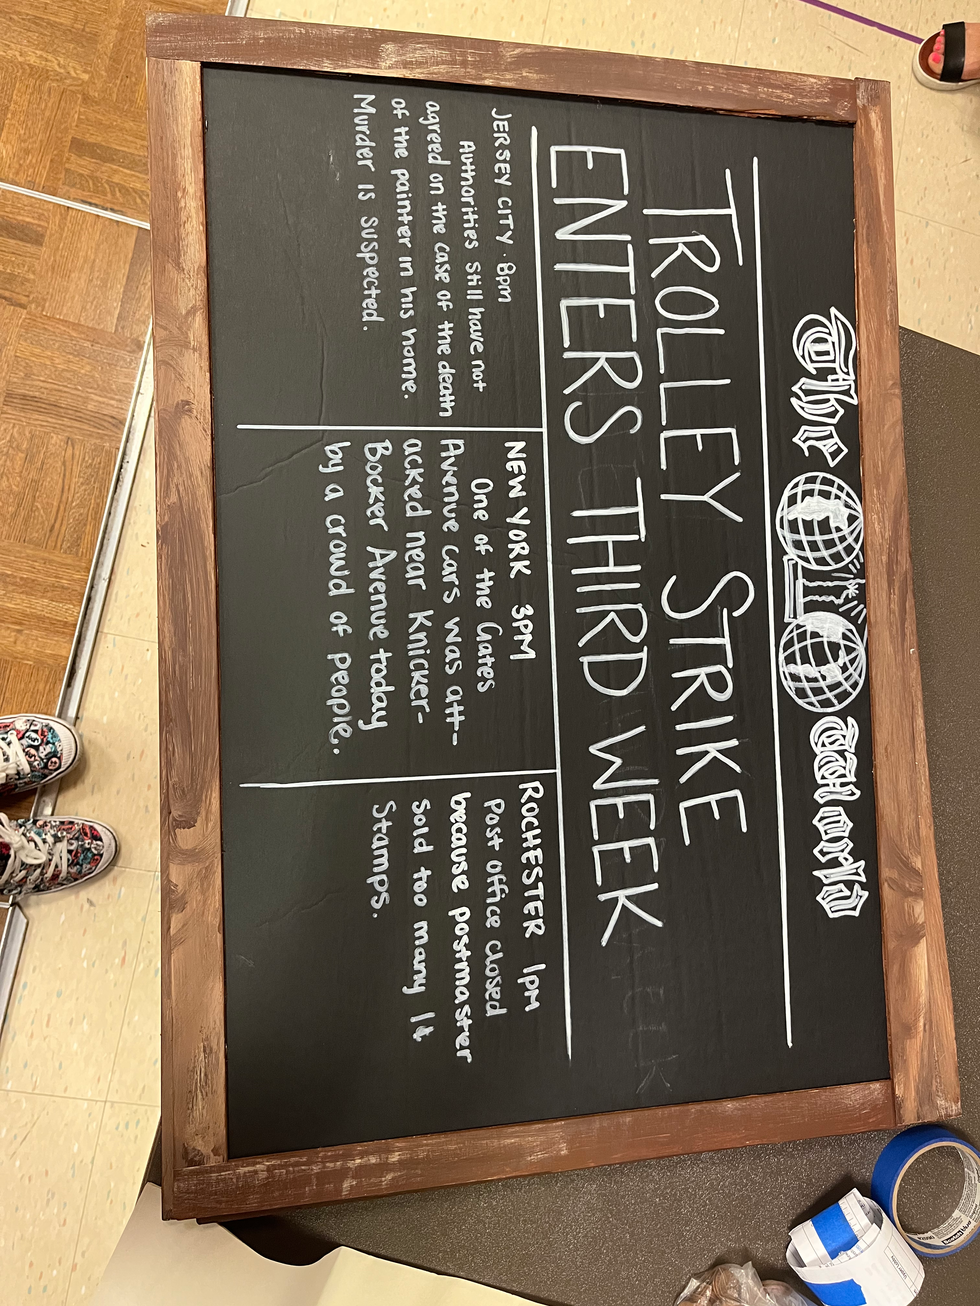 The World
TROLLEY STRIKE
ENTERS THIRD WEEK
JERSEY CITY · 8pm
Authorities still have not
agreed on the case of the death
of the painter in his home.
Murder is suspected.
NEW YORK 3PM
One of the Gates
Avenue cars was att-
acked near Knicker-
Bocker Avenue today
by a crowd of people.
ROCHESTER 1PM
Post office closed
because postmaster
sold too many 1¢
Stamps.
Scotch